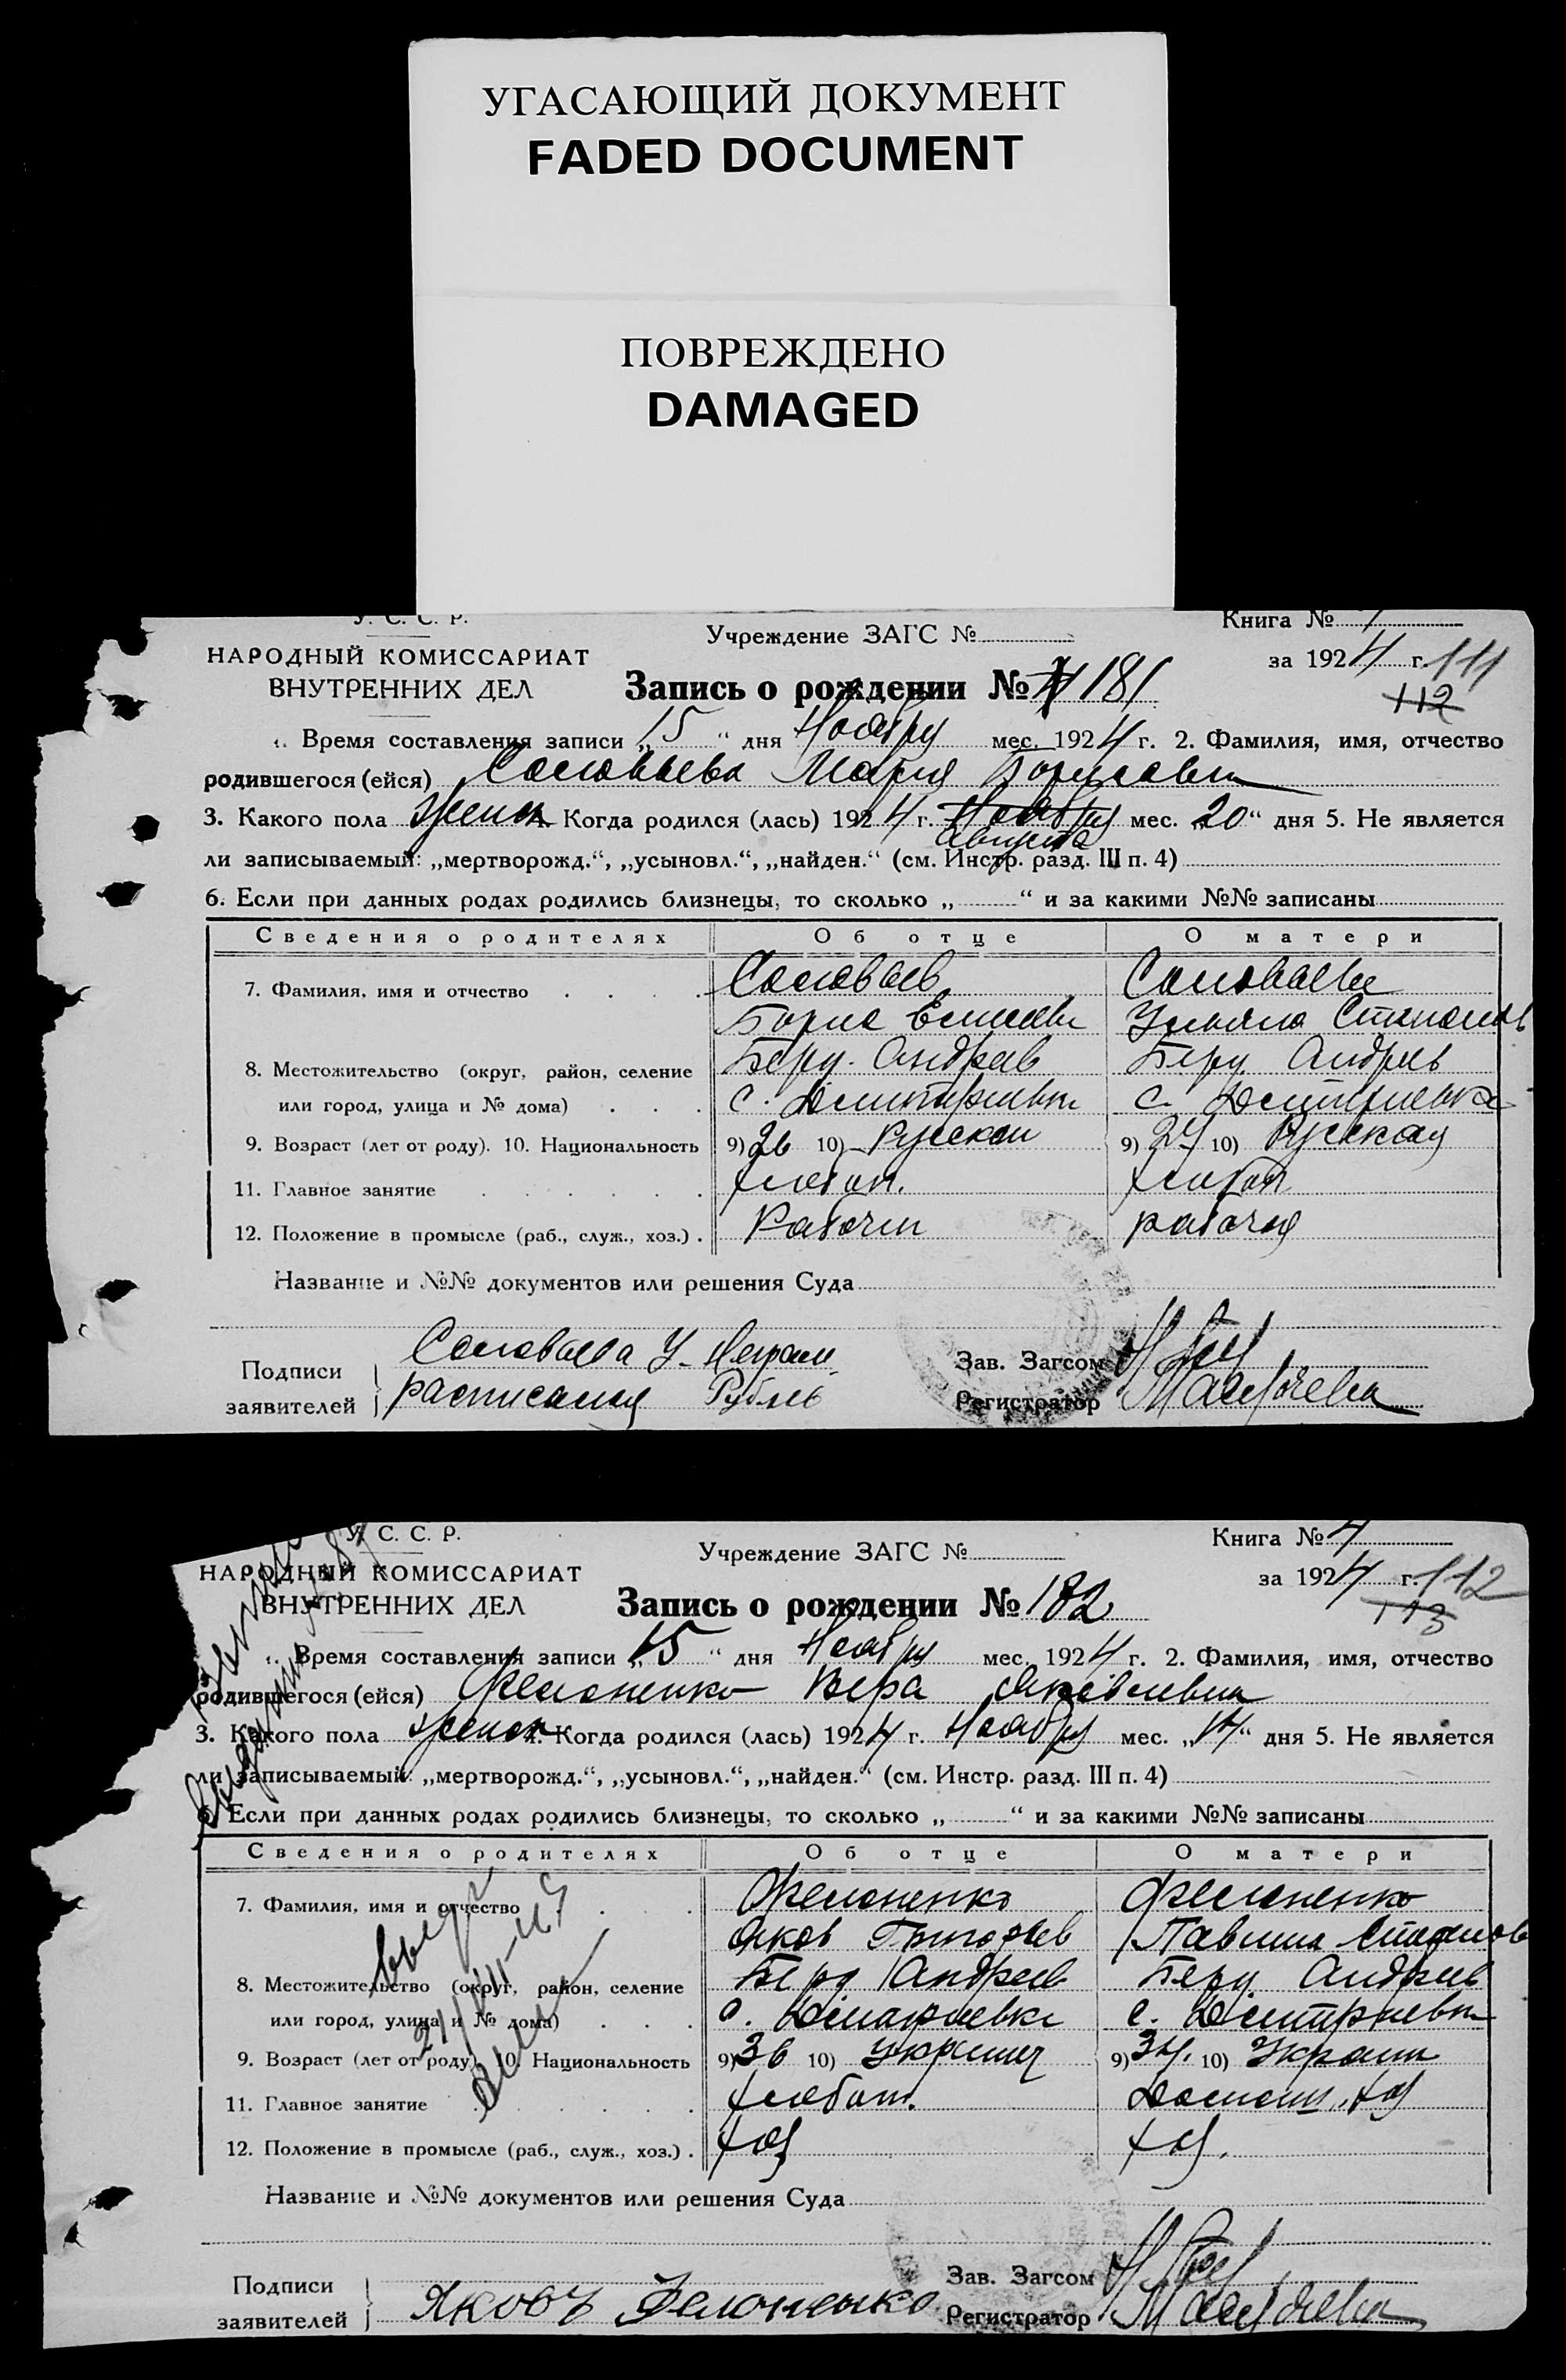 УГАСАЮЩИЙ ДОКУМЕНТ
FADED DOCUMENT
ПОВРЕЖДЕНО
DAMAGED
У. С. С. Р.
НАРОДНЫЙ КОМИССАРИАТ
ВНУТРЕННИХ ДЕЛ
Учреждение ЗАГС №
Книга №
за 1924 г. 111
112
Запись о рождении № 181
Время составления записи „15“ дня Ноября мес. 1924 г. 2. Фамилия, имя, отчество
родившегося (ейся) Соловьева Мария Борисовн
3. Какого пола женск 4. Когда родился (лась) 1924 г. Ноября мес. „20“ дня 5. Не является
Августа
ли записываемый: „мертворожд.“, „усыновл.“, „найден.“ (см. Инстр. разд. III п. 4)
6. Если при данных родах родились близнецы, то сколько „ “ и за какими №№ записаны
Сведения о родителях Об отце О матери
7. Фамилия, имя и отчество Соловьев Соловьева
Борис Ульяна Степанов
8. Местожительство (округ, район, селение Берд. Андреев Берд Андреев
или город, улица и № дома) с. Дмитриевка с. Дмитриевка
9. Возраст (лет от роду). 10. Национальность 9) 26 10) Русский 9) 24 10) Русская
11. Главное занятие хлебоп. хлебоп
12. Положение в промысле (раб., служ., хоз.) Рабочий рабочая
Название и №№ документов или решения Суда
Подписи
заявителей
Соловьева У. Неграм
расписалась
Зав. Загсом
Регистратор
У. С. С. Р.
НАРОДНЫЙ КОМИССАРИАТ
ВНУТРЕННИХ ДЕЛ
Учреждение ЗАГС №
Книга № 4
за 1924 г. 112
113
Запись о рождении № 182
Время составления записи „15“ дня Ноября мес. 1924 г. 2. Фамилия, имя, отчество
родившегося (ейся) Филоненко Вера Яковлевна
3. Какого пола женск 4. Когда родился (лась) 1924 г. Ноября мес. „14“ дня 5. Не является
ли записываемый: „мертворожд.“, „усыновл.“, „найден.“ (см. Инстр. разд. III п. 4)
6. Если при данных родах родились близнецы, то сколько „ “ и за какими №№ записаны
Сведения о родителях Об отце О матери
7. Фамилия, имя и отчество Филоненко Филоненко
Яков Григорьев Павлина Степанов
8. Местожительство (округ, район, селение Берд Андреев Берд Андреев
или город, улица и № дома) с. Дмитриевка с. Дмитриевка
9. Возраст (лет от роду). 10. Национальность 9) 36 10) Украинец 9) 34. 10) Украин
11. Главное занятие хлебоп. Домаш. хоз
12. Положение в промысле (раб., служ., хоз.) хоз хоз.
Название и №№ документов или решения Суда
Подписи
заявителей
Яковъ Филоненко
Зав. Загсом
Регистратор